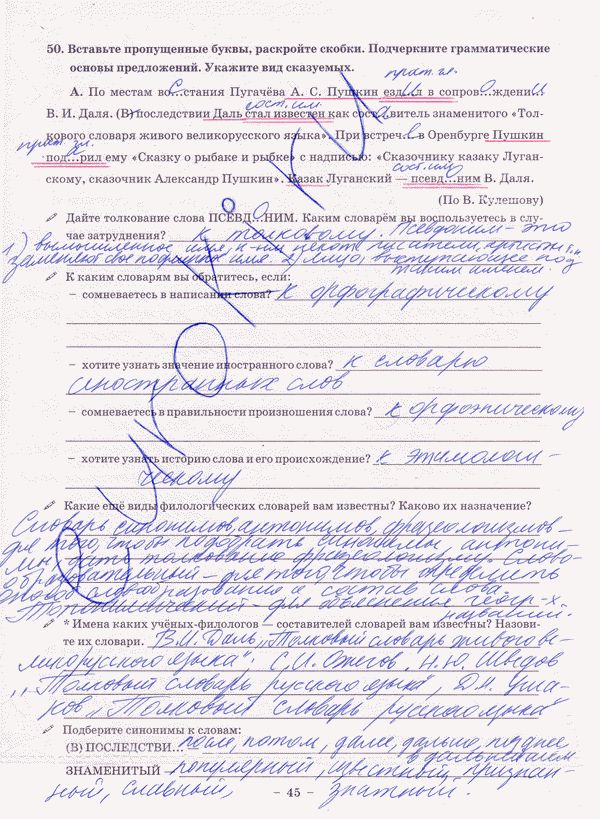 50. Вставьте пропущенные буквы, раскройте скобки. Подчеркните грамматические
основы предложений. Укажите вид сказуемых.
прост. гл.
А. По местам восстания Пугачёва А. С. Пушкин ездил в сопровождении
сост. им.
В. И. Даля. (В)последствии Даль стал известен как составитель знаменитого «Тол-
кового словаря живого великорусского языка». При встрече в Оренбурге Пушкин
прост. гл.
под...рил ему «Сказку о рыбаке и рыбке» с надписью: «Сказочнику казаку Луган-
сост. им.
скому, сказочник Александр Пушкин». Казак Луганский — псевд...ним В. Даля.
(По В. Кулешову)
Дайте толкование слова ПСЕВДОНИМ. Каким словарём вы воспользуетесь в слу-
чае затруднения? К толковому. Псевдоним – это
1) вымышленное имя, к-им некот. писатели, артисты
заменяют свое подлинное имя. 2) Лицо, выступающее под
таким именем.
К каким словарям вы обратитесь, если:
– сомневаетесь в написании слова? к орфографическому
– хотите узнать значение иностранного слова? к словарю
иностранных слов
– сомневаетесь в правильности произношения слова? к орфоэпическому
– хотите узнать историю слова и его происхождение? к этимологи-
ческому
Какие ещё виды филологических словарей вам известны? Каково их назначение?
Словарь синонимов, антонимов, фразеологизмов –
для того, чтобы подобрать синонимы, антони-
мы, дать толкование фразеологизму. Слово-
образовательный – для того, чтобы определить
способ словообразования и состав слова.
Топонимический – для объяснения геогр-х
названий.
* Имена каких учёных-филологов — составителей словарей вам известны? Назови-
те их словари. В.И. Даль „Толковый словарь живого ве-
ликорусского языка", С.И. Ожегов, Н.Ю. Шведов
„Толковый словарь русского языка", Д.Н. Уша-
ков „Толковый словарь русского языка"
Подберите синонимы к словам:
(В) ПОСЛЕДСТВИ... – после, потом, далее, дальше, позднее
в дальнейшем
ЗНАМЕНИТЫЙ – популярный, известный, признан-
ный, славный, знатный.
– 45 –